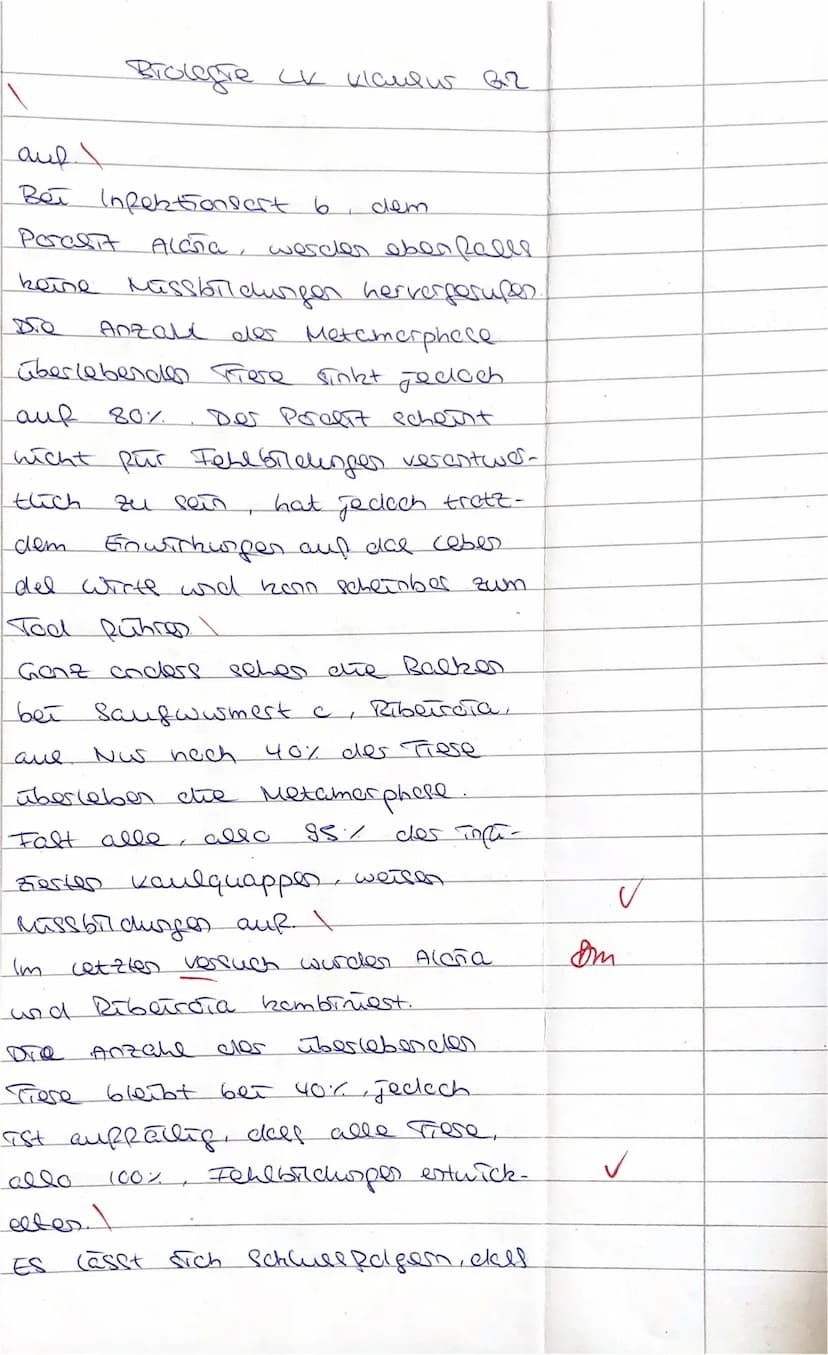 Biologie LK Klausur Q2
auf.
Bei Infektionsart b, dem
Parasit Alaria, werden ebenfalls
keine Missbildungen hervorgerufen.
Die Anzahl der Metamorphose
überlebenden Tiere sinkt jedoch
auf 80%. Der Parasit scheint
nicht für Fehlbildungen verantwor-
tlich zu sein, hat jedoch trotz-
dem Einwirkungen auf das Leben
des Wirts und kann scheinbar zum
Tod führen.
Ganz anders sehen die Balken
bei Saugwurmart c, Ribeiroia,
aus. Nur noch 40% der Tiere
überleben die Metamorphose.
Fast alle, also 95% der infi-
zierten Kaulquappen, weisen
Missbildungen auf.
Im letzten Versuch wurden Alaria
Dm
und Ribeiroia kombiniert.
Die Anzahl der überlebenden
Tiere bleibt bei 40%, jedoch
ist auffällig, dass alle Tiere,
also 100%, Fehlbildungen entwick-
elten.
Es lässt sich schlussfolgern, dass